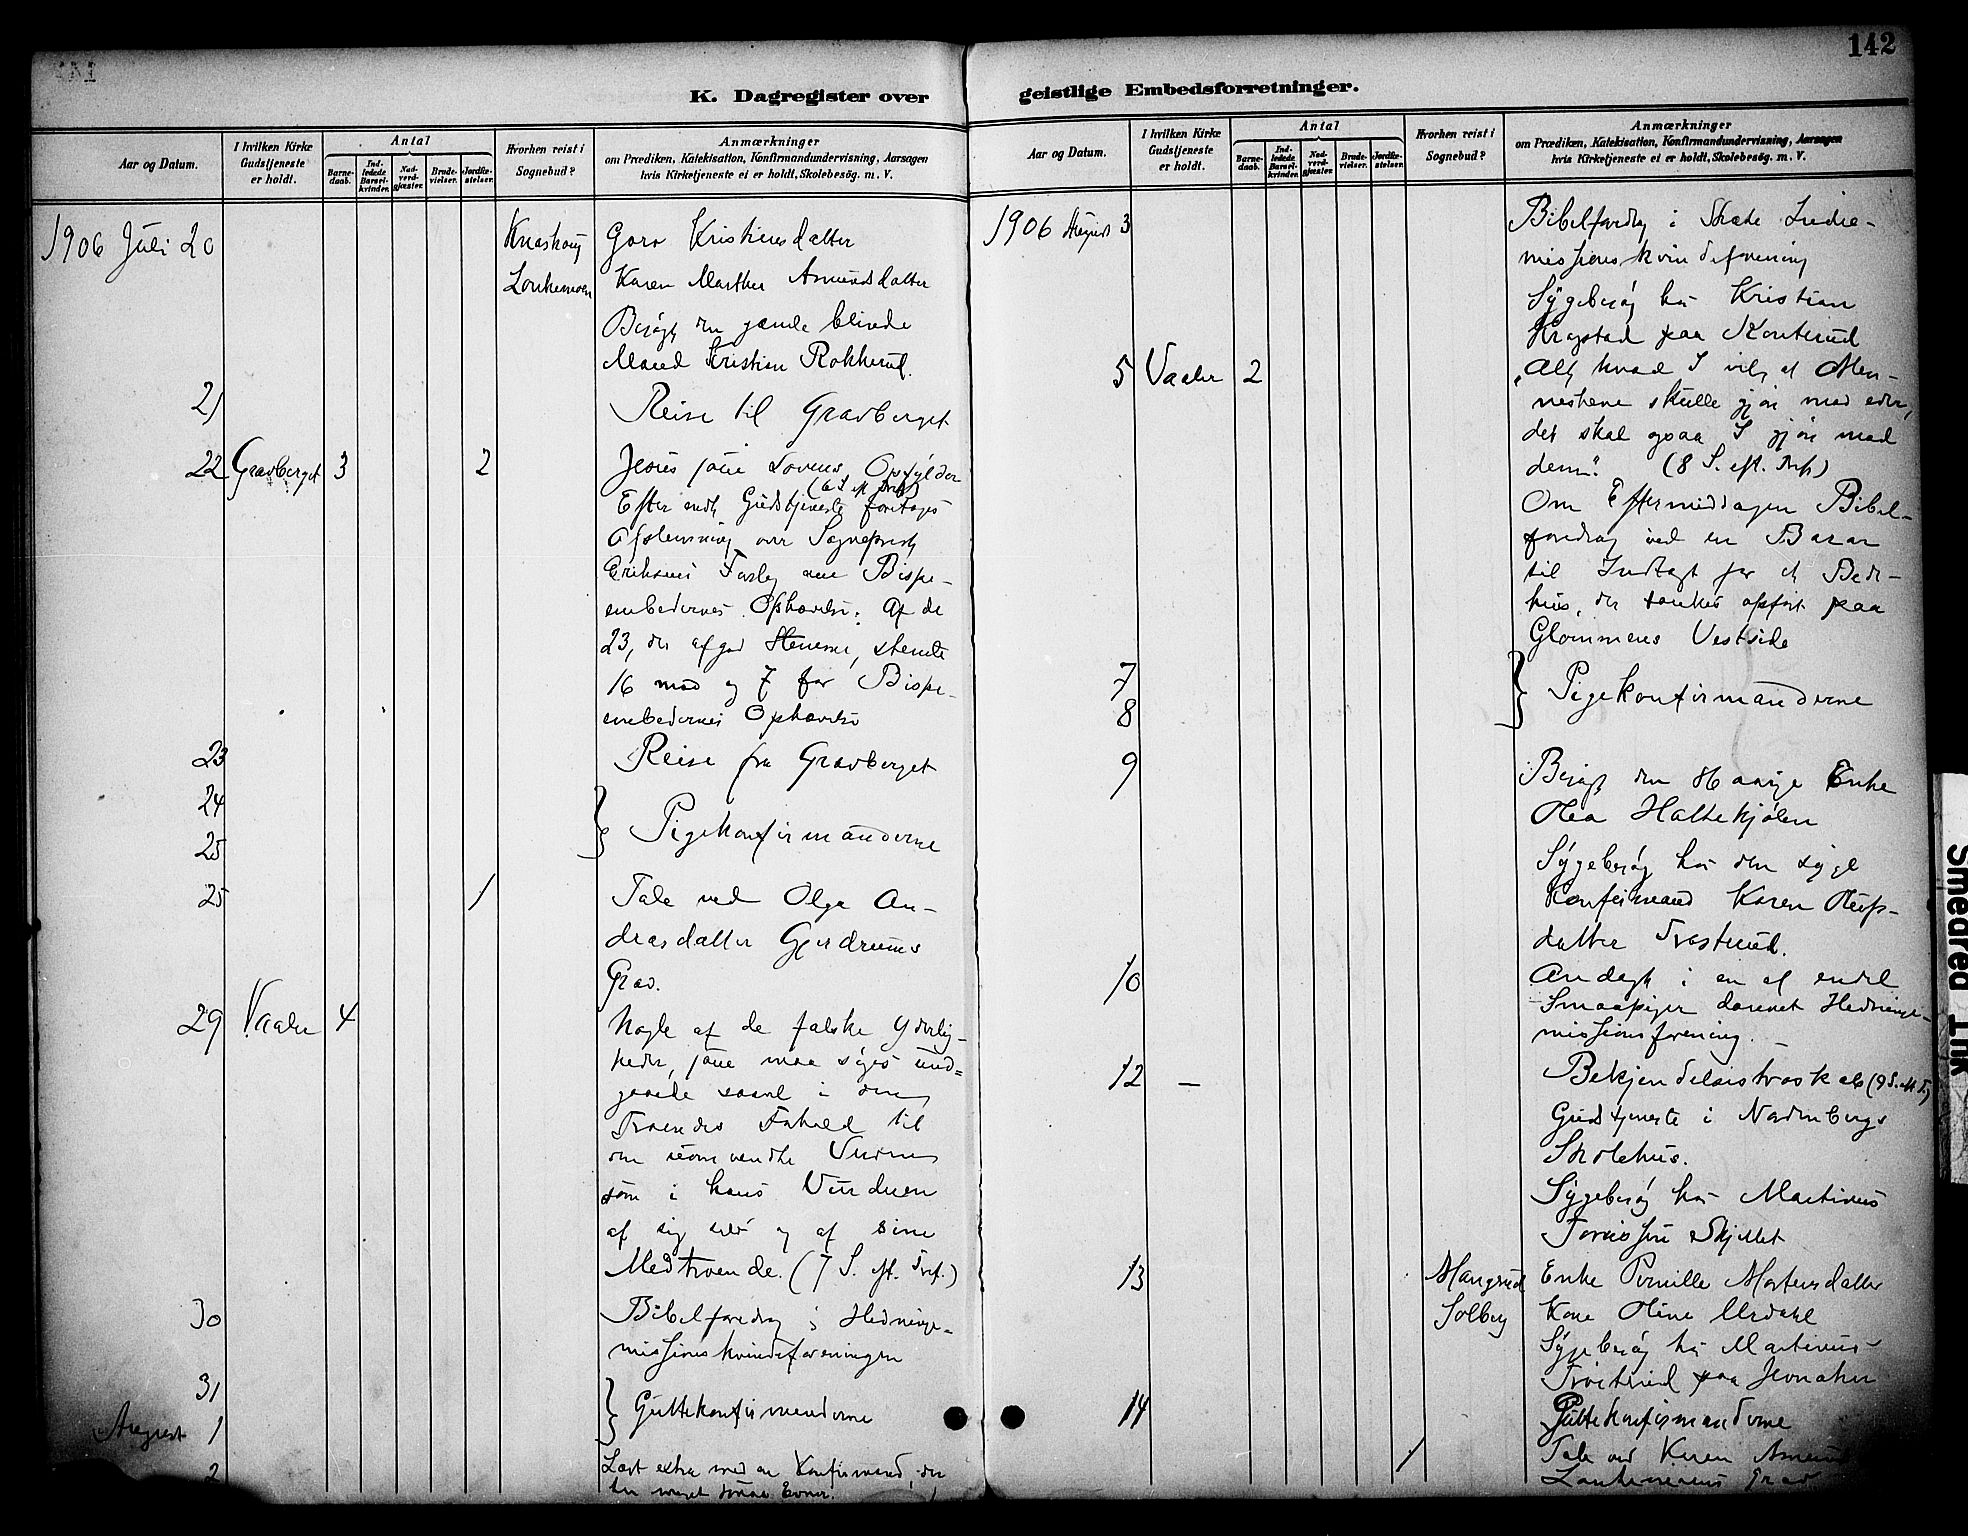 142
K. Dagregister over geistlige Embedsforretninger.
Aar og Datum.
I hvilken Kirke Gudstjeneste er holdt.
Antal
Barnedaab.
Indledede Barselkvinder.
Nadverdgjæster.
Brudevielser.
Jordfæstelser.
Hvorhen reist i Sognebud?
Anmærkninger
om Prædiken, Katekisation, Konfirmandundervisning, Aarsagen
hvis Kirketjeneste ei er holdt, Skolebesøg. m. V.
1906 Juli 20 Goro Kristiensdatter
Karen Marthea Amundsdatter
Besøgt den gamle blinde
Mand Kristian Rokkerud.
21 Reise til Gravberget
22 Gravberget 3 2 Jesus som Lovens Opfylder
(6 S. eft. Tref.)
Efter endt Gudstjeneste foretages
Afstemning over Sogneprest
Eriksens Forslag om Bispe-
embedernes Ophævelse. Af de
23, der afgav Stemme, stemte
16 mod og 7 for Bispe-
embedernes Ophævelse
23 Reise fra Gravberget
24
25 } Pigekonfirmanderne
25 1 Tale ved Olga An-
dreasdatter Gjerdrums
Grav.
29 Vaaler 4 Nogle af de falske Yderlig-
heder, som maa søges und-
gaaede saavel i den
Troendes Forhold til
den uomvendte Verden
som i hans Vurderen
af sig selv og af sine
Medtroende. (7 S. eft. Tref.)
30 Bibelforedrag i Hedninge-
missionskvindeforeningen
31
August 1 } Guttekonfirmanderne
2 Læst extra med en Konfirmand, der
har meget smaa Evner.
Aar og Datum.
I hvilken Kirke Gudstjeneste er holdt.
Antal
Barnedaab.
Indledede Barselkvinder.
Nadverdgjæster.
Brudevielser.
Jordfæstelser.
Hvorhen reist i Sognebud?
Anmærkninger
om Prædiken, Katekisation, Konfirmandundervisning, Aarsagen
hvis Kirketjeneste ei er holdt, Skolebesøg. m. V.
1906 August 3 Bibelforedrag i Indre-
missionskvindeforening
Sygebesøg hos Kristian
Krogstad paa Konterud
5 Vaaler 2 „Alt hvad I vil, at Men-
neskene skulle gjøre mod eder,
det skal ogsaa I gjøre mod
dem". (8 S. eft. Tref.)
Om Eftermiddagen Bibel-
foredrag ved en Basar
til Indtægt for et Bede-
hus, der tænkes opført paa
Glommens Vestside
7
8 } Pigekonfirmanderne
9 Besøgt den aarige Enke
Olea Haltekjølen
Sygebesøg hos den syge
Konfirmand Karen Olufs-
datter
10 Andagt i en af endel
Smaapiger dannet Hedninge-
missionsforening.
12 – Bekjendelsistroskab (9 S. eft. Tr.)
Gudstjeneste i Nordenbergs
Skolehus.
Sygebesøg hos Martinus
Skjellet
13 Mangrud Enke Pernille Mortensdatter
Solberg Kone Oline Urdahl
Sygebesøg hos Martinus
paa
14 Guttekonfirmanderne
1 Tale ved Karen Amunds
Grav
Smeared Ink